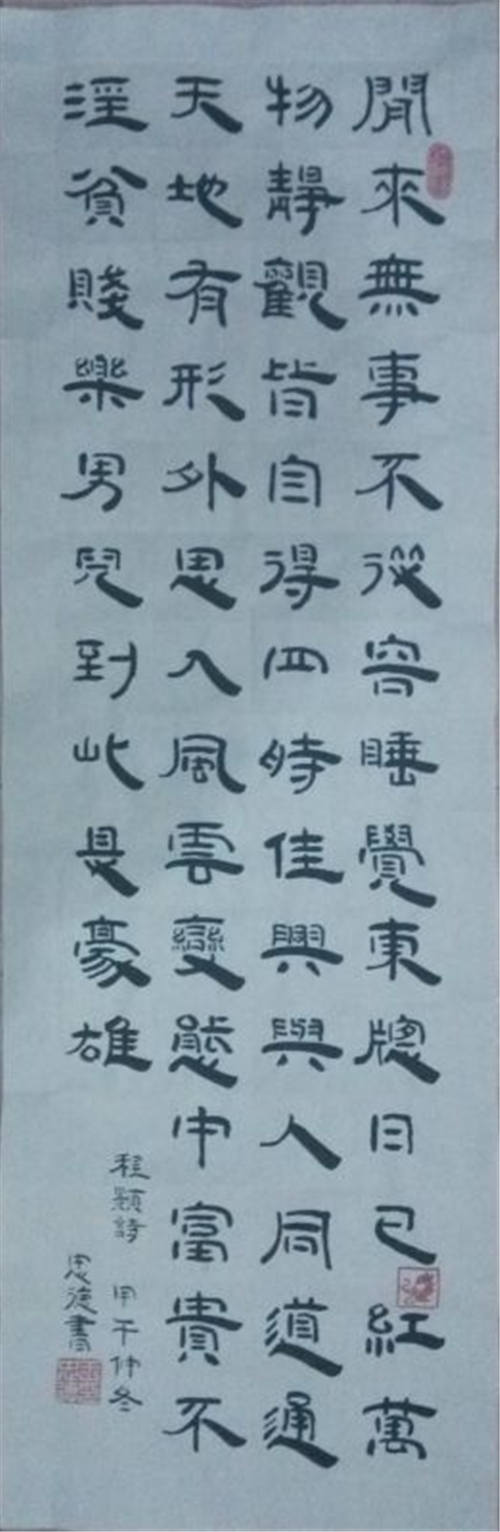 閒來無事不從容睡覺東牕日已紅萬
物靜觀皆自得四時佳興與人同道通
天地有形外思入風雲變態中富貴不
淫貧賤樂男兒到此是豪雄
程顥詩 甲午仲冬
思德書